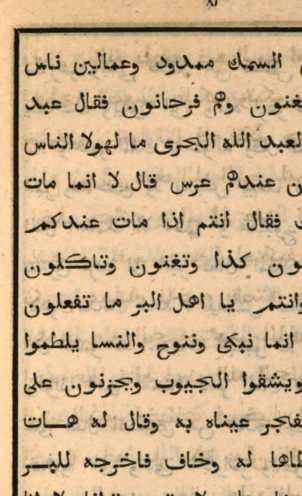 السمك ممدود وعمالين ناس
يغنون وهم فرحانون فقال عبد
لعبد الله البحرى ما لهولا الناس
عندهم عرس قال لا انما مات
فقال انتم اذا مات عندكم
كذا وتغنون وتاكلون
وانتم يا اهل البر ما تفعلون
انما نبكى وننوح والنسا يلطموا
ويشقوا الجيوب ويحزنون على
عيناه به وقال له هات
له وخاف فاخرجه للبر